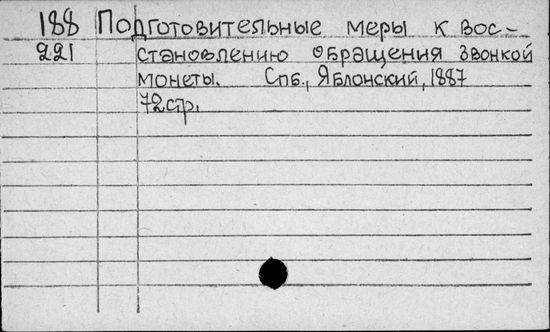 188 Подготовительные меры к вос-
221 становлению обращения звонкой
монеты. Спб., Яблонский, 1887
72стр.